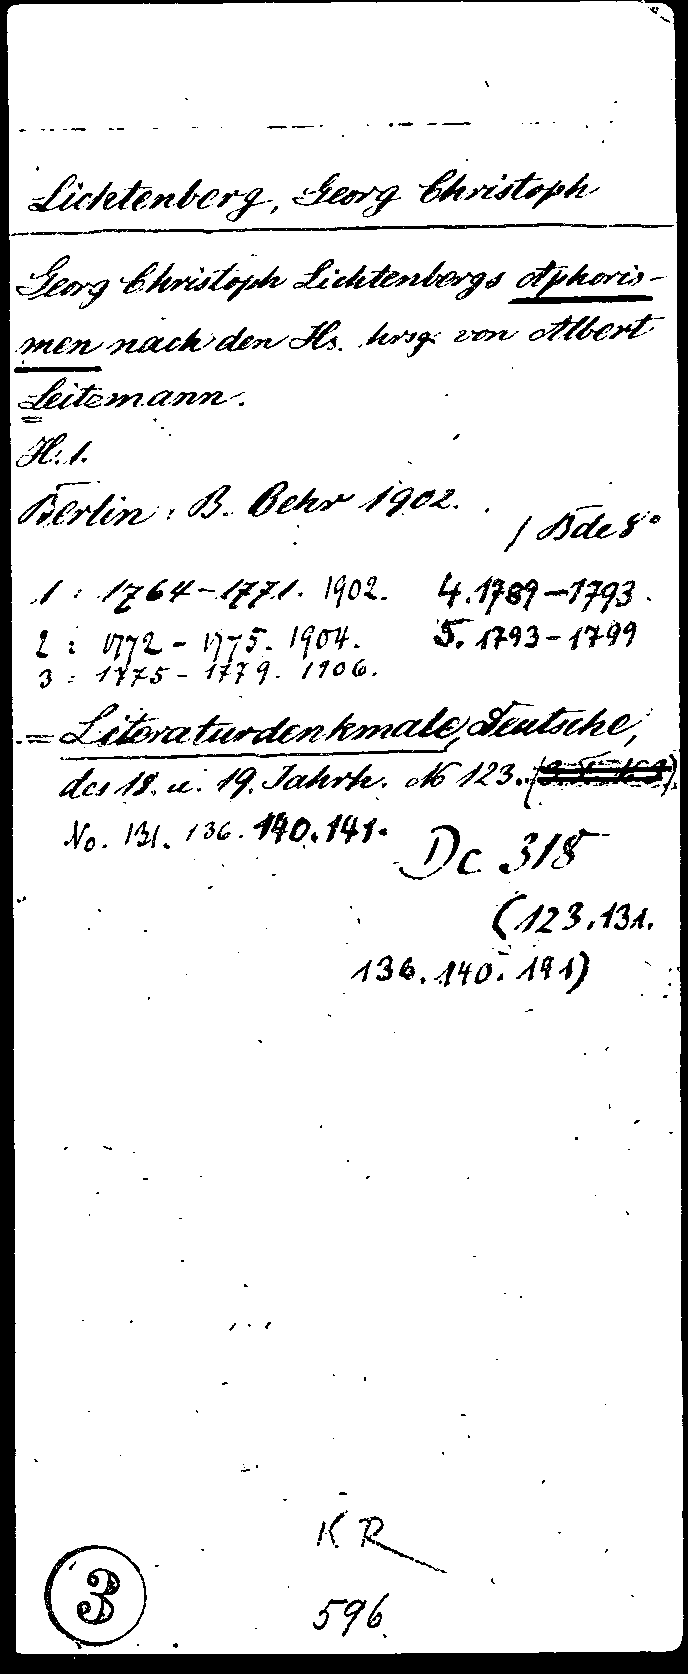 Lichtenberg, Georg Christoph
Georg Christoph Lichtenbergs Aphoris-
men nach den Hs. hrsg. von Albert
Leitzmann.
H. 1.
Berlin: B. Behr 1902.
/ Bde 8°
1: 1764-1771. 1902. 4. 1789-1793.
2: 1772-1775. 1904. 5. 1793-1799
3: 1775-1779. 1906.
= Literaturdenkmale, Deutsche,
des 18. u. 19. Jahrh. No 123.
No. 131. 136. 140. 141.
Dc 318
(123. 131.
136. 140. 141)
KR
3
596